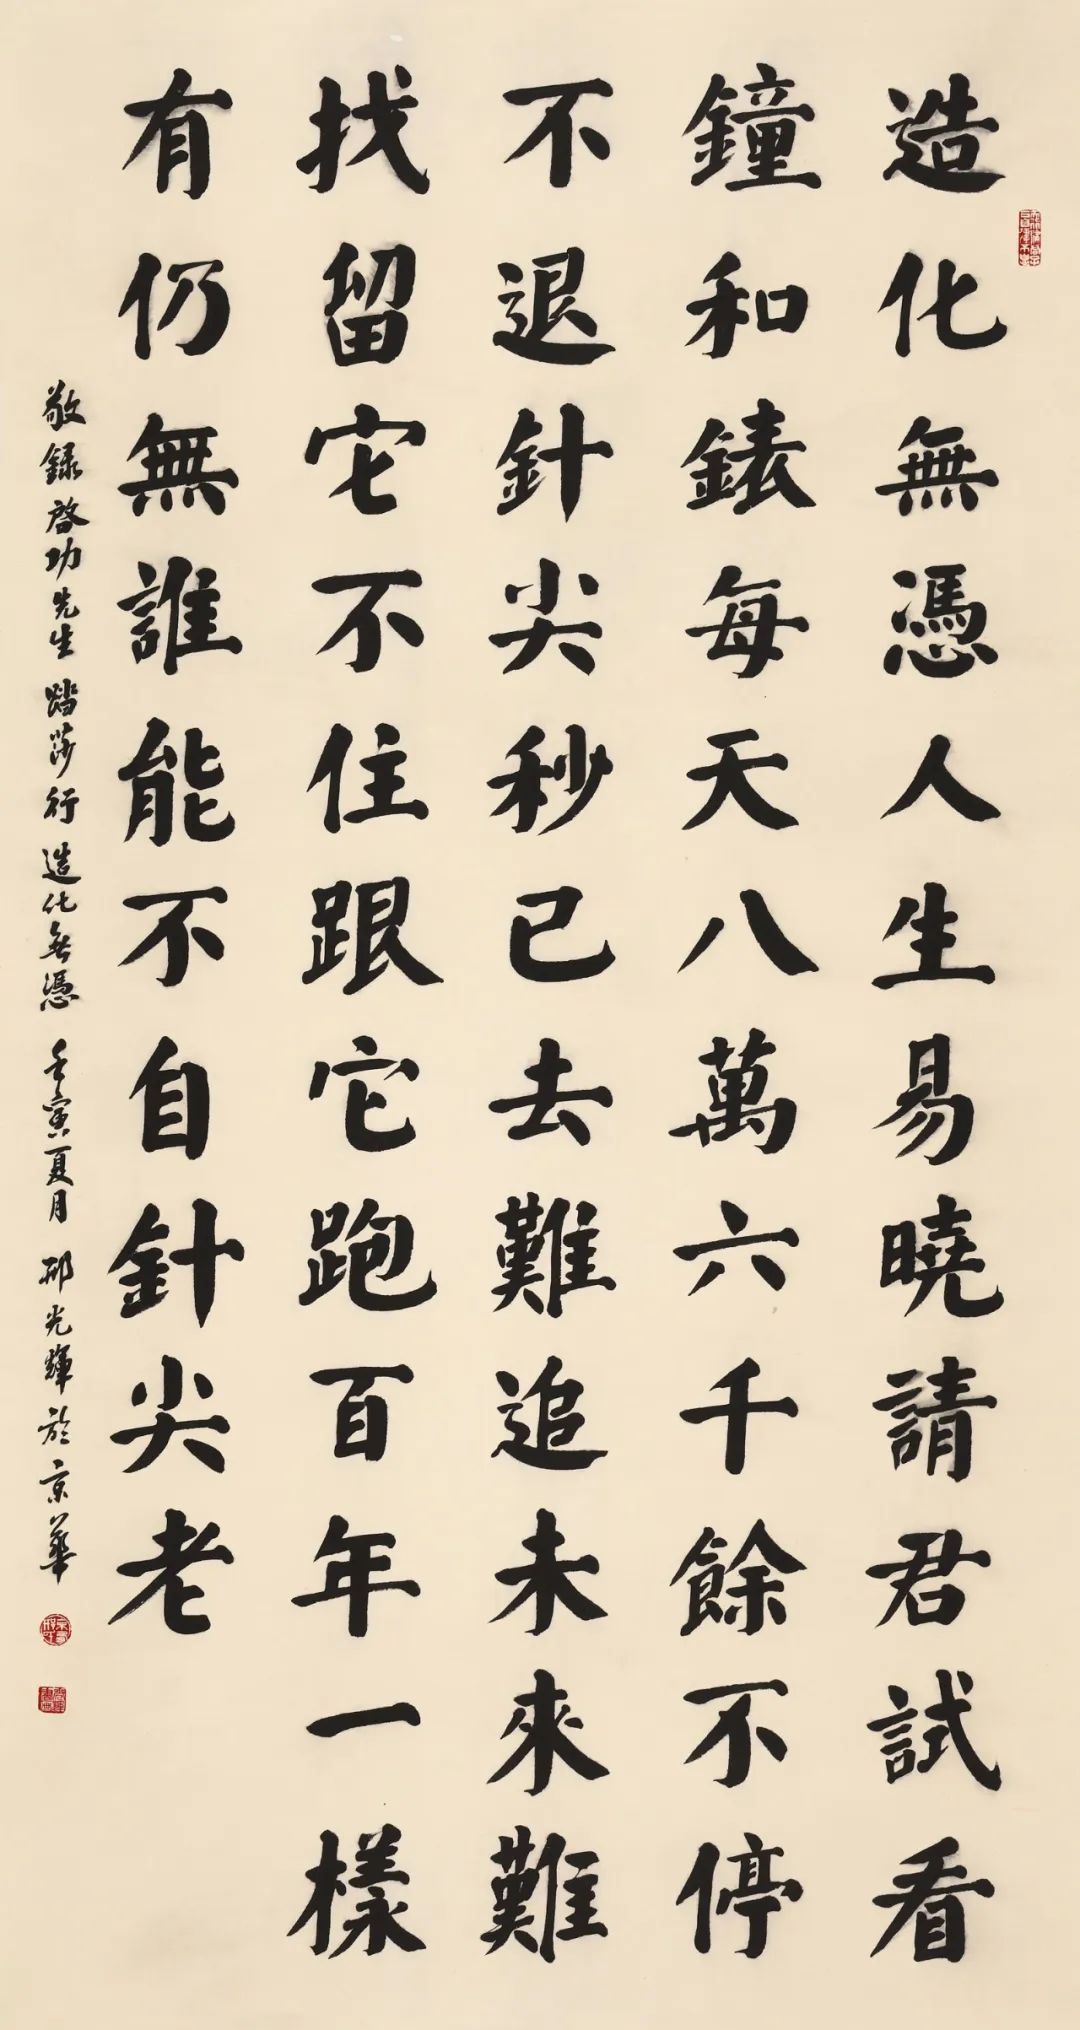 造化無憑人生易曉請君試看
鐘和錶每天八萬六千餘不停
不退針尖秒已去難追未來難
找留它不住跟它跑百年一樣
有仍無誰能不自針尖老
敬録啓功先生踏莎行造化無憑壬寅夏月邴光輝於京華